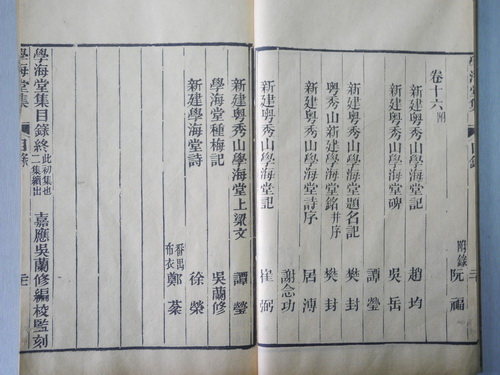 附錄 阮福
卷十六附
新建粵秀山學海堂記 趙均
新建粵秀山學海堂碑 吳岳
譚瑩
新建粵秀山學海堂題名記 樊封
粵秀山新建學海堂銘并序 樊封
新建粵秀山學海堂詩序 居溥
謝念功
新建粵秀山學海堂記 崔弼
新建粵秀山學海堂上梁文 譚瑩
學海堂種梅記 吳蘭修
新建學海堂詩 徐榮
番禺布衣 鄭棻
學海堂集目錄終 此初集也二集續出 嘉應吳蘭修編校監刻
學海堂集 目錄